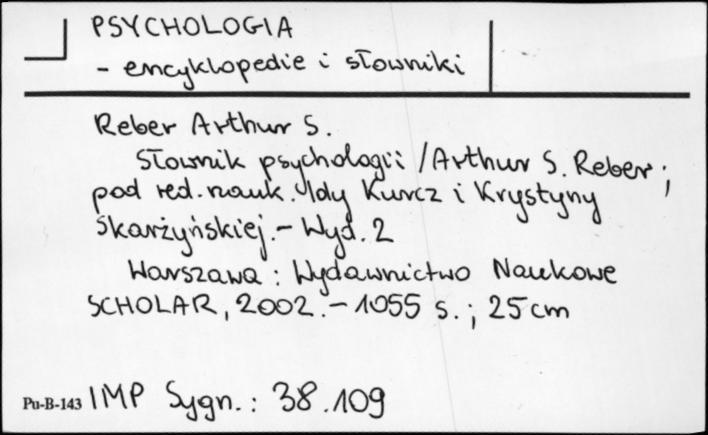 PSYCHOLOGIA
- encyklopedie i słowniki
Reber Arthur S.
Słownik psychologii / Arthur S. Reber ;
pod red. nauk. Idy Kurcz i Krystyny
Skarżyńskiej. - Wyd. 2
Warszawa : Wydawnictwo Naukowe
SCHOLAR, 2002. - 1055 s. ; 25 cm
Pu-B-143 IMP Sygn. : 38.109